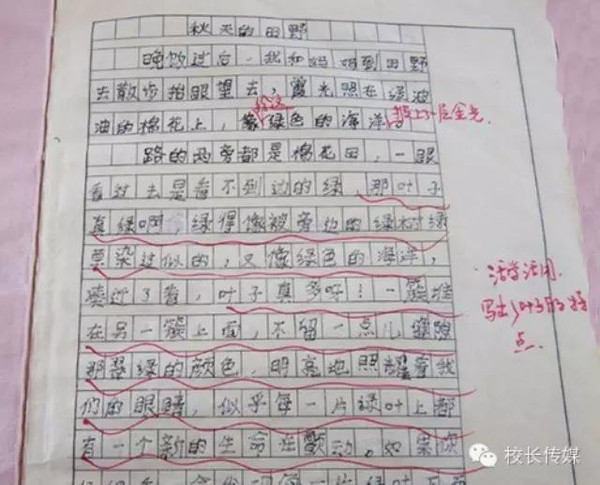 秋天的田野
晚饭过后,我和妈妈到田野
去散步抬眼望去,霞光照在绿油
油的棉花上,像绿色的海洋
披上了一层金光。
路的两旁都是棉花田,一眼
看过去是看不到边的绿,那叶子
真绿啊 绿得像被旁边的绿树绿
草染过似的,又像绿色的海洋,
凑近了看,叶子真多呀!一簇堆
在另一簇上面,不留一点儿缝隙
那翠绿的颜色,明亮地照耀着我
们的眼睛,似乎每一片绿叶上都
有一个新的生命在颤动。如果你
活学活用,
写出了叶子的特
点.
校长传媒